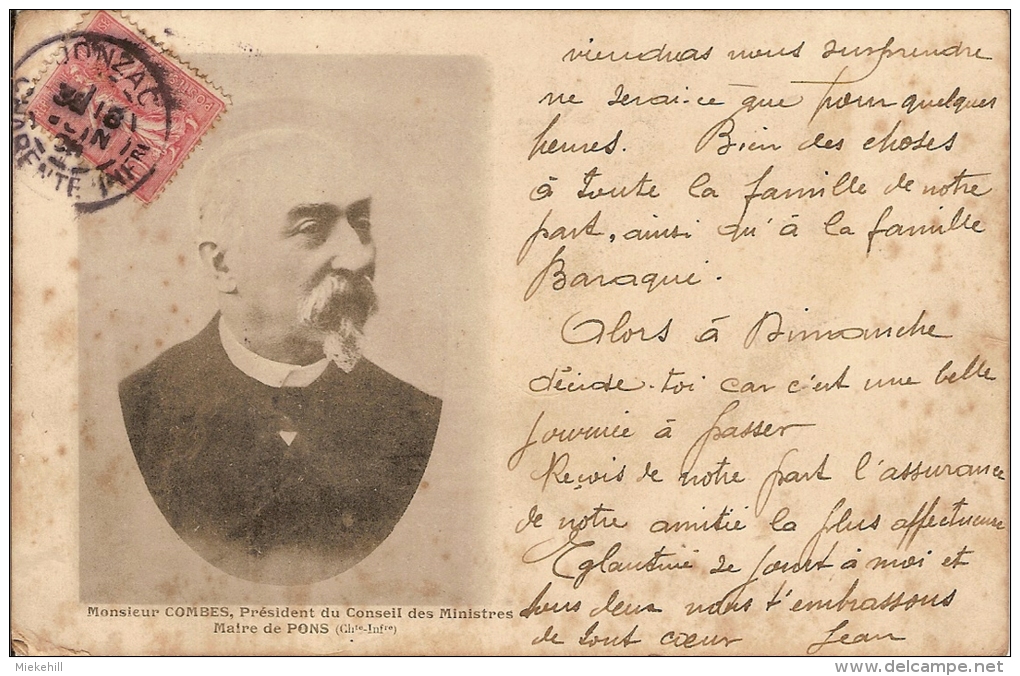 JONZAC
CHARENTE INFRE
POSTES
viendras nous surprendre
ne serai-ce que pour quelques
heures. Bien des choses
à toute la famille de notre
part, ainsi qu'à la famille
Baraqué.
Alors à Dimanche
décide-toi car c'est une belle
journée à passer
Reçois de notre part l'assurance
de notre amitié la plus affectueuse
Eglantine se joint à moi et
tous deux nous t'embrassons
de tout cœur Jean
Monsieur COMBES, Président du Conseil des Ministres
Maire de PONS (Chte-Infre)
Miekehill
www.delcampe.net